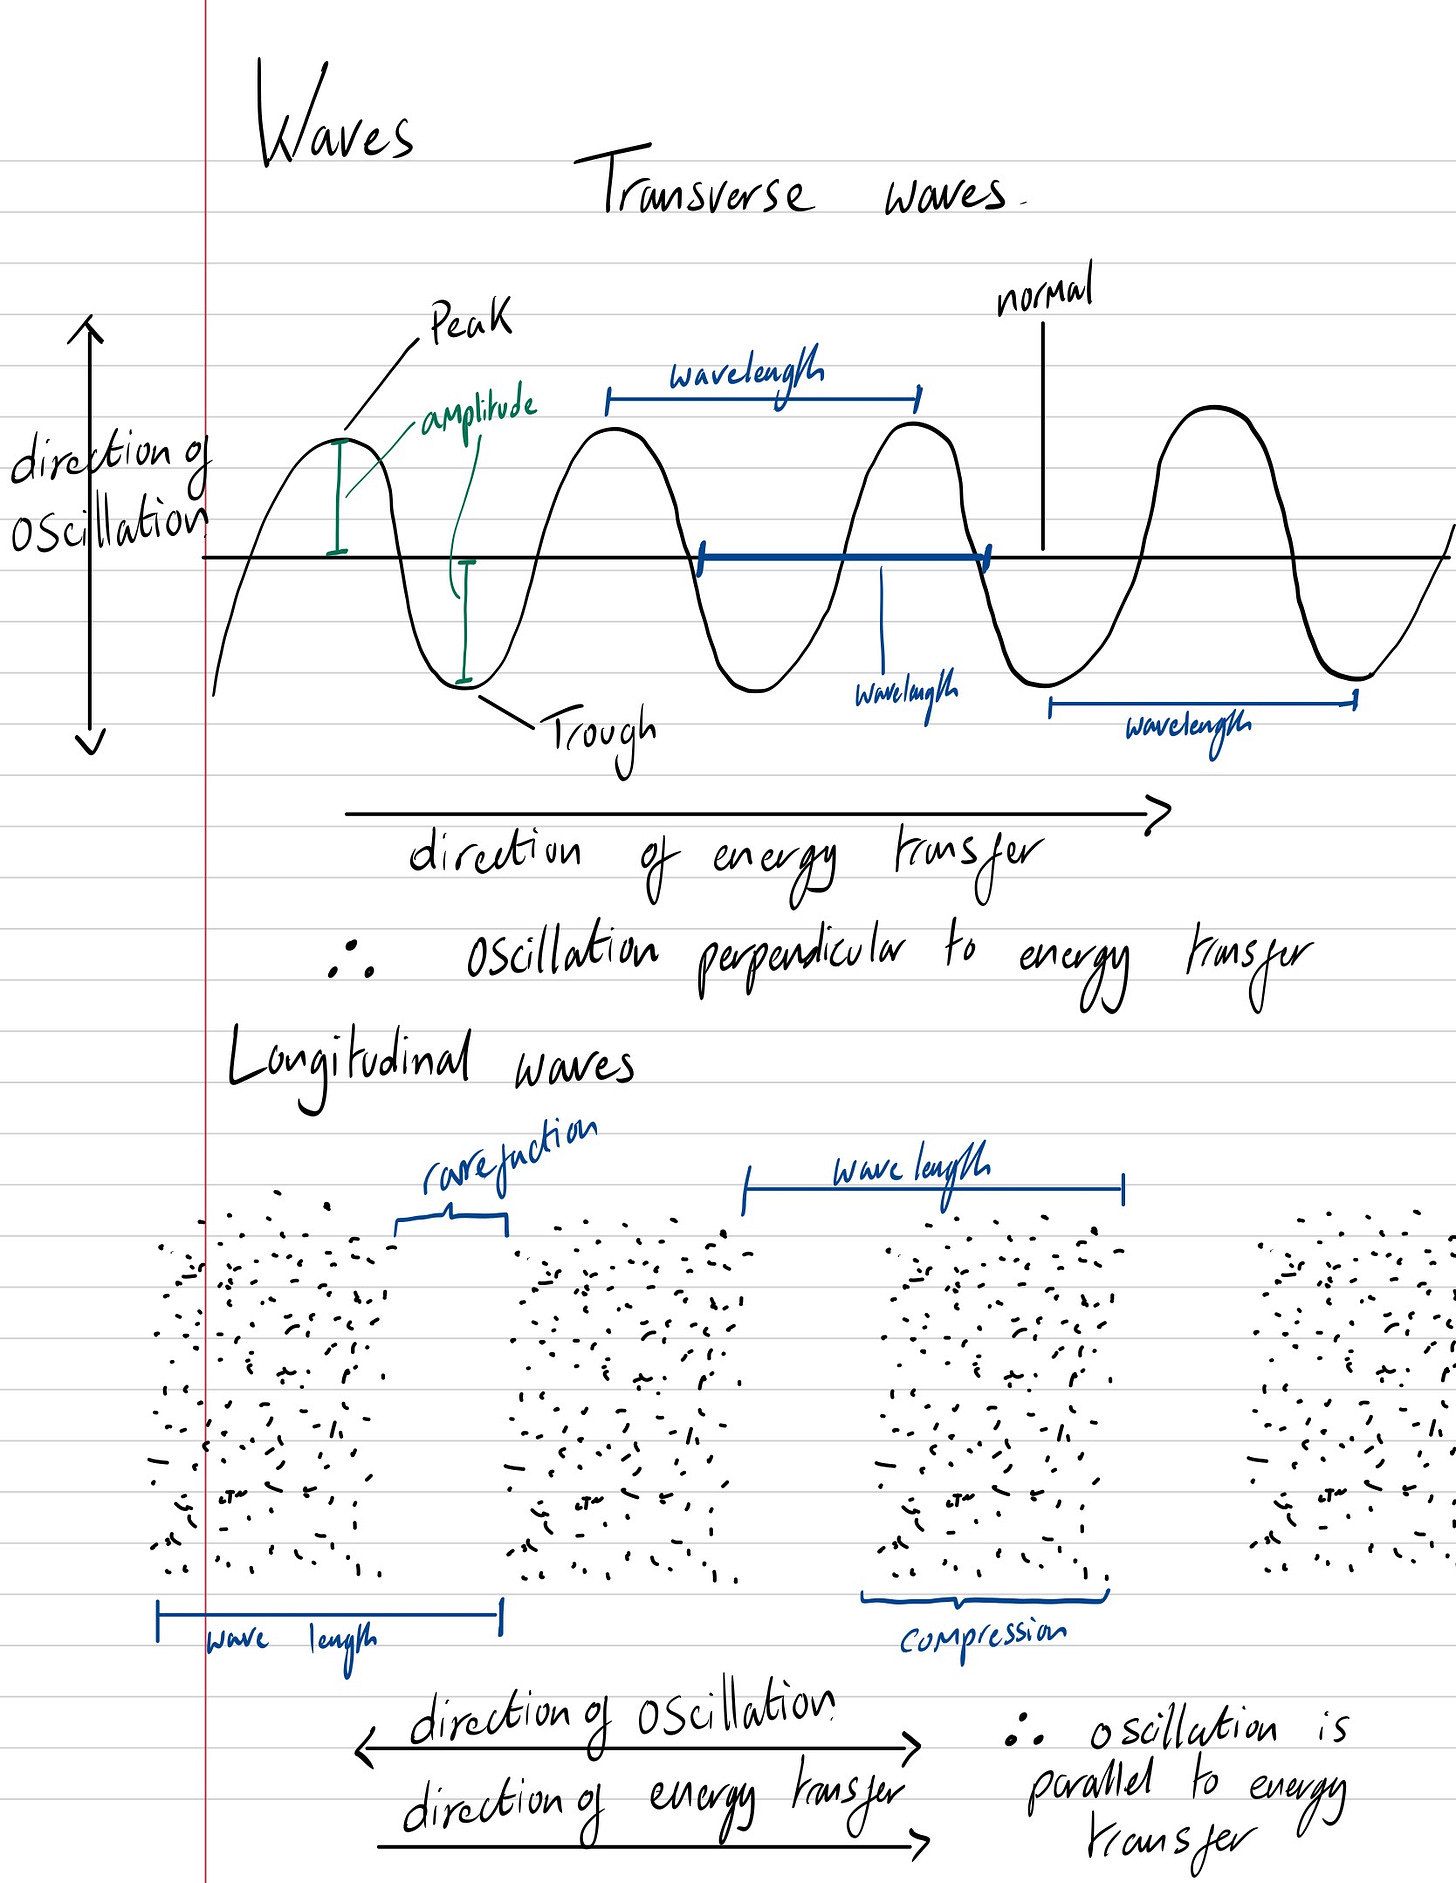 Waves
Transverse waves.
normal
Peak
wavelength
amplitude
direction of
oscillation
wavelength
wavelength
Trough
direction of energy transfer
∴ oscillation perpendicular to energy transfer
Longitudinal waves
rarefaction
wave length
wave length
compression
direction of oscillation
direction of energy transfer
∴ oscillation is
parallel to energy
transfer